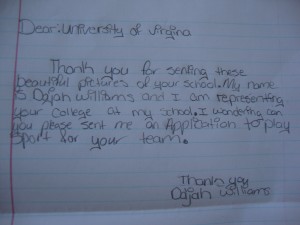 Dear: University of Virgina
Thank you for senting these
beautiful pictures of your school. My name
is Dajah Williams and I am representing
your College at my school. I wondering can
you please sent me an Application to play
sport for your team.
Thank you
Dajah Williams